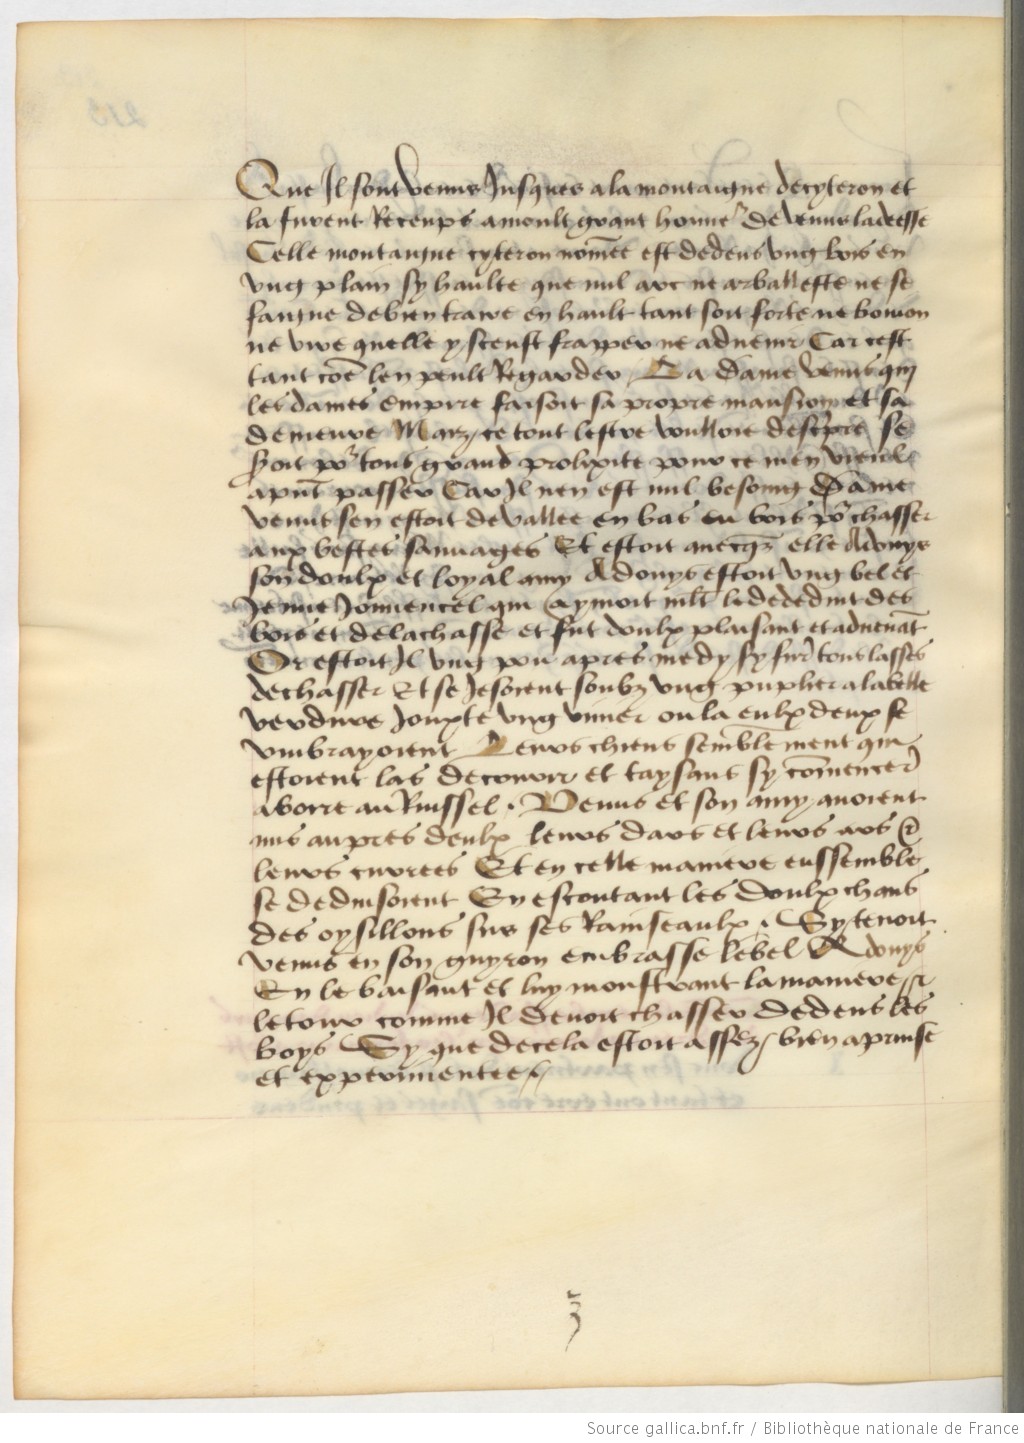 Que Il sont venus Jusques a la montaigne de cyteron et
la furent Receups a moult grant honne^r de venus la deesse
Celle montaigne cyteron nōmee est dedens vng bois en
vng plain sy haulte que nul arc ne arballeste ne se
faigne de bien traire en hault tant soit forte ne boujon
ne vire quelle y sceust frapper ne aduenir Car cest
tant cōe len peult Regarder / La dame venus qui
les dames empire faisoit sa propre mansion et sa
demeure Mais / ce tout lestre vouloie descpre se
soit po^r tous grand prolixite pour ce men vieul
a pnt passer Car Il nen est nul besoing Dame
venus sen estoit deuallee en bas eu bois po^r chasser
aux bestes sauuages Et estoit auecqz elle Adonys
son doulx et loyal amy Adonys estoit vng bel et
Jenne Jouuencel qui aymoit mlt le dededuit des
bois et de la chasse et fut doulx plaisant et aduenāt
Or estoit Il vng pou apres medy sy furēt tous lasses
de chasser Et se Jesoient soubz vng puplier a la belle
verdure Jouxte vng viuier ou la eulx deux se
vmbrayoient Leurs chiens semblement qui
estoient las de courir et taysans sy cōmencerēt
a boire au Ruissel . Venus et son amy auoient
mis aupres deulx leurs dars et leurs ars et
leurs cuirees Et en celle maniere enssemble
se deduisoient En escoutant les doulx chans
des oysillons sur ses Rainseaulx . Sy tenoit
venus en son guyron embrasse le bel Adonys
En le baisant et luy monstrant la maniere et
le tour comme Il deuoit chasser dedens les
boys Sy que de cela estoit assez / bien aprinse
et experimentee
Source gallica.bnf.fr / Bibliothèque nationale de France